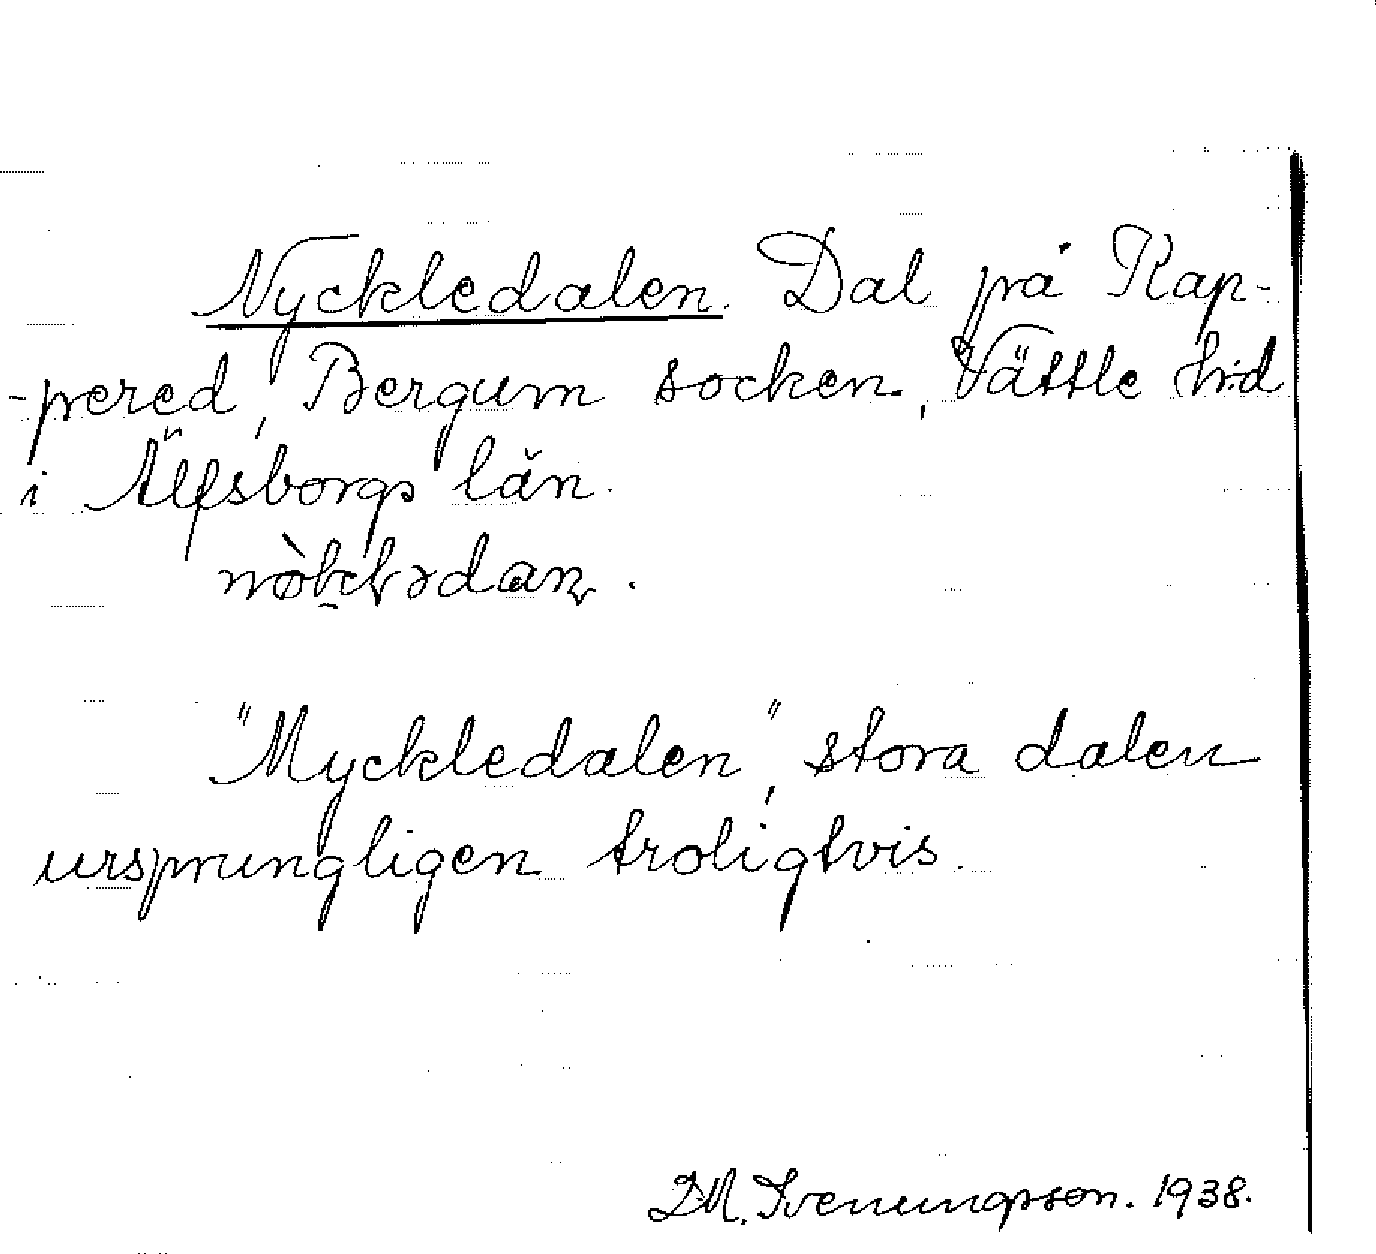 Nyckledalen. Dal på Rap-
-pered, Bergum socken., Vättle h:d
i Älfsborgs län.
"Myckledalen", stora dalen
ursprungligen troligtvis.
D.M. Svenungsson. 1938.